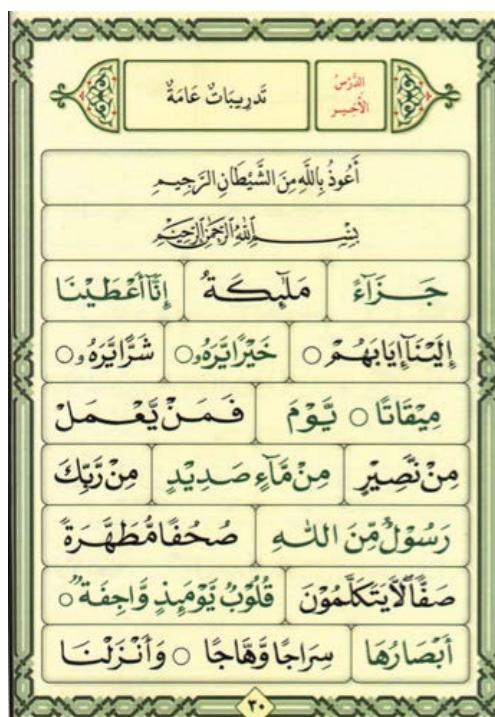 الدَّرْسُ الأَخِيـر
تَدْرِيبَاتٌ عَامَةٌ
أَعُوذُ بِاللَّهِ مِنَ الشَّيْطَانِ الرَّجِيـمِ
بِسْـــمِ ٱللَّهِ ٱلرَّحْمَٰنِ ٱلرَّحِيمِ
جَـزَآءً مَلٰٓئِكَةُ إِنَّآ أَعْطَيْنَا
إِلَيْنَآ إِيَابَهُمْ ○ خَيْرًا يَّرَهُ و○ شَرًّا يَّرَهُ و○
مِيْقَاتًا ○ يَّوْمَ فَـمَـنْ يَّعْـمَـلْ
مِنْ نَّصِيْرٍ مِنْ مَّآءٍ صَـدِيْدٍ مِنْ رَّبِّكَ
رَسُوْلٌ مِّنَ اللّٰهِ صُحُفًا مُّطَهَّـرَةً
صَفًّا لَّا يَتَكَلَّمُوْنَ قُلُوْبٌ يَّوْمَئِذٍ وَّاجِفَةٌ ○
أَبْصَارُهَا سِرَاجًا وَّهَّاجًا ○ وَأَنْزَلْنَا
٣٠